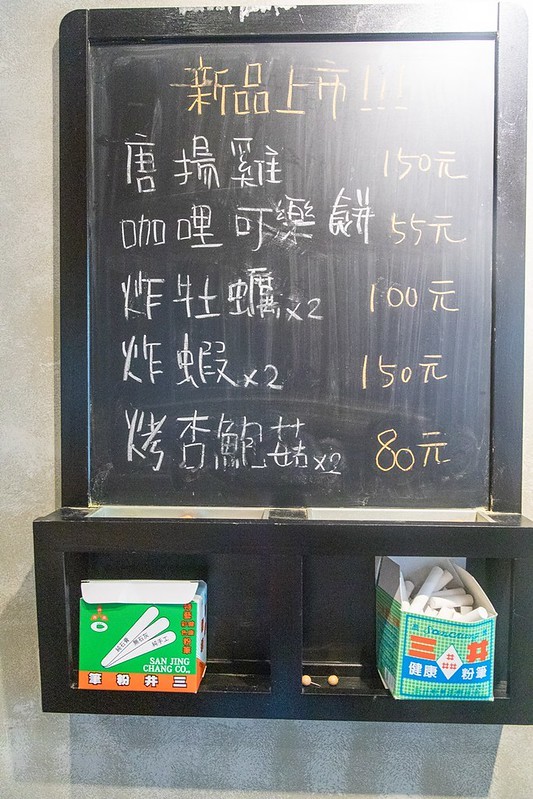 新品上市!!!
唐揚雞 150元
咖哩可樂餅 55元
炸牡蠣x2 100元
炸蝦x2 150元
烤杏鮑菇x2 80元
SAN JING
CHANG CO.,
三井粉筆
三井
健康粉筆